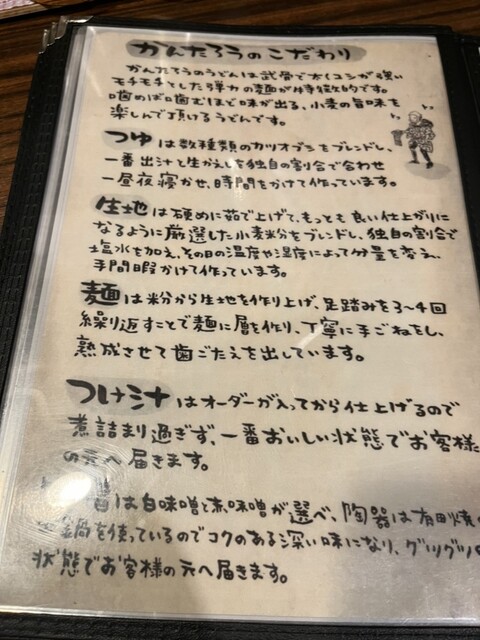 かんたろうのこだわり
かんたろうのうどんは武骨で太くコシが強い
モチモチとした弾力の麺が特徴的です。
噛めば噛むほど味が出る、小麦の旨味を
楽しんで頂けるうどんです。
つゆは数種類のカツオブシをブレンドし、
一番出汁と生かえしを独自の割合で合わせ
一昼夜寝かせ、時間をかけて作っています。
生地は硬めに茹で上げて、もっとも良い仕上がりに
なるように厳選した小麦粉をブレンドし、独自の割合で
塩水を加え、その日の温度や湿度によって分量を変え、
手間暇かけて作っています。
麺は粉から生地を作り上げ、足踏みを3~4回
繰り返すことで麺に層を作り、丁寧に手ごねをし、
熟成させて歯ごたえを出しています。
つけ汁はオーダーが入ってから仕上げるので
煮詰まり過ぎず、一番おいしい状態でお客様
の元へ届きます。
は白味噌と赤味噌が選べ、陶器は有田焼の
鍋を使っているのでコクのある深い味になり、グツグツの
状態でお客様の元へ届きます。